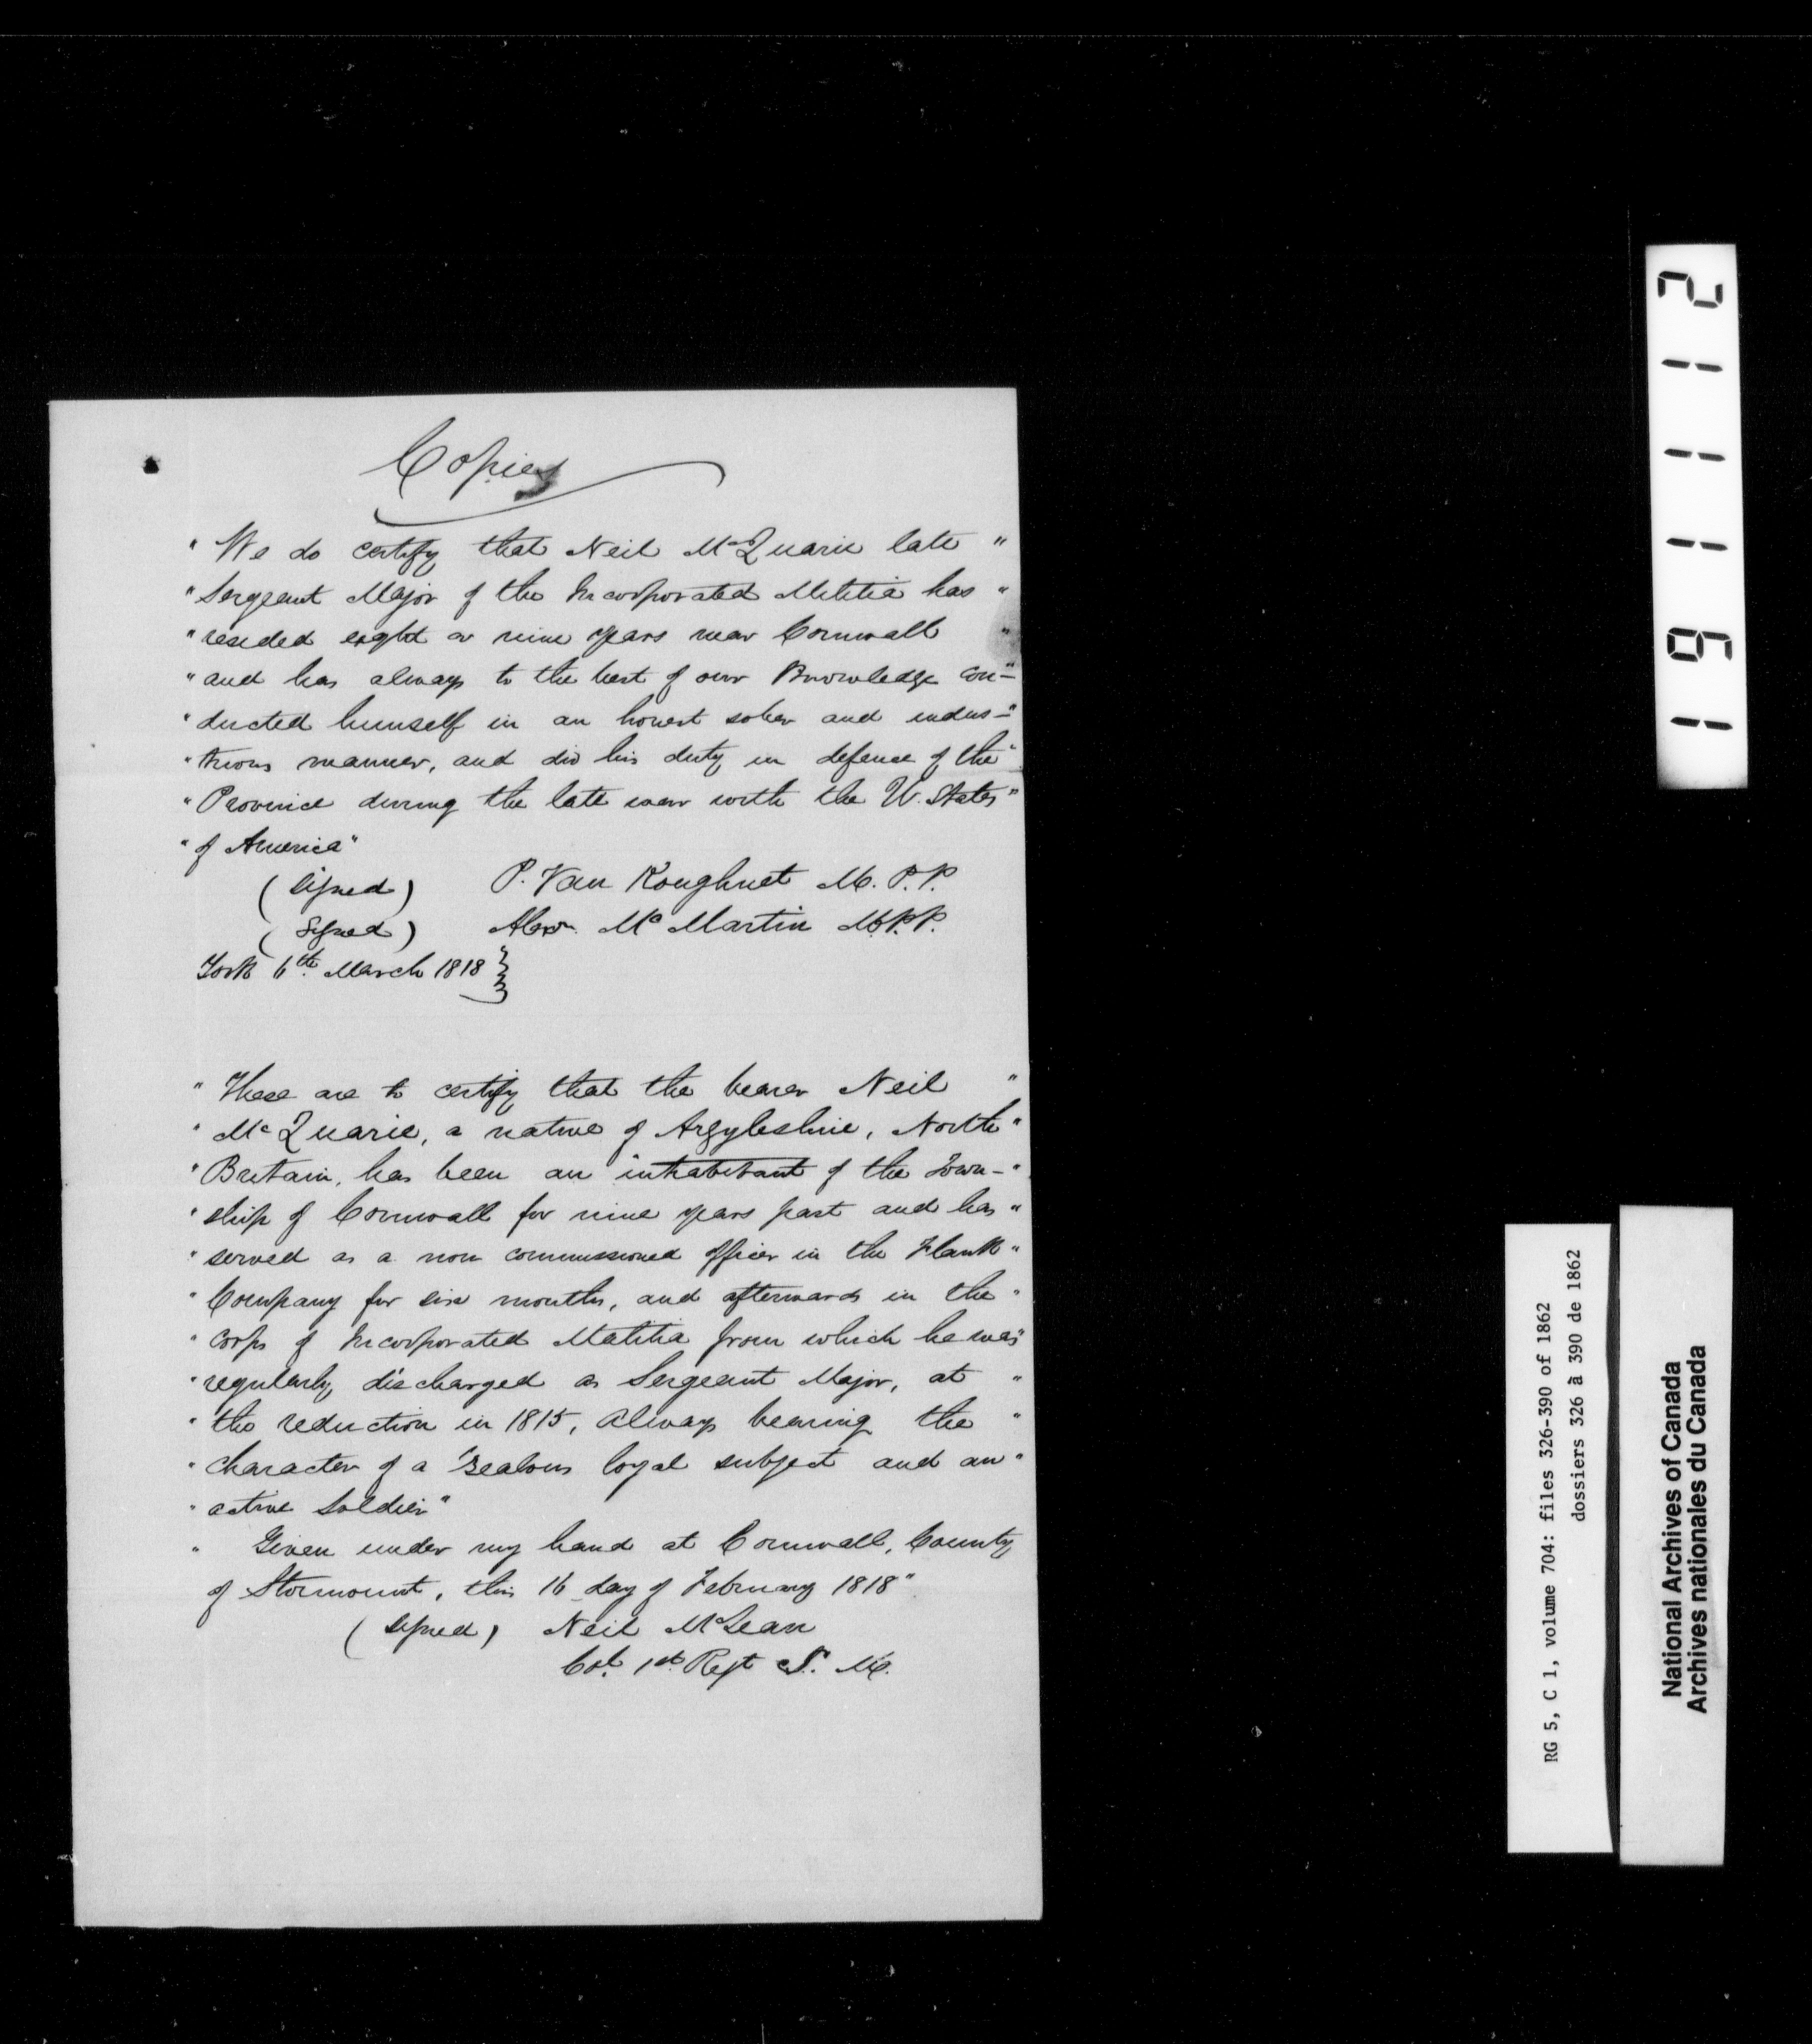 Copies
" We do certify that Neil McQuarie late "
" Sergeant Major of the Incorporated Militia has "
" resided eight or nine years near Cornwall "
" and has always to the best of our Knowledge con- "
" ducted himself in an honest sober and indus- "
" trious manner, and did his duty in defence of the "
" Province during the late war with the U. States "
" of America "
( Signed ) P. Van Koughnet M. P. P.
( Signed ) Alexr. Mc Martin M.P.P.
York 6th. March 1818 }
" These are to certify that the bearer Neil "
" McQuarie, a native of Argyleshire, North "
" Britain, has been an inhabitant of the Town- "
" ship of Cornwall for nine years past and has "
" served as a non commissioned officer in the Flank "
" Company for six months, and afterwards in the "
" Corps of Incorporated Militia from which he was "
" regularly discharged as Sergeant Major, at "
" the reduction in 1815, always bearing the "
" character of a zealous loyal subject and an "
" active Soldier "
" Given under my hand at Cornwall, County
of Stormount, this 16 day of February 1818 "
( Signed ) Neil McLean
Col. 1st. Regt S. M.
191112
RG 5, C 1, volume 704: files 326-390 of 1862
dossiers 326 à 390 de 1862
National Archives of Canada
Archives nationales du Canada